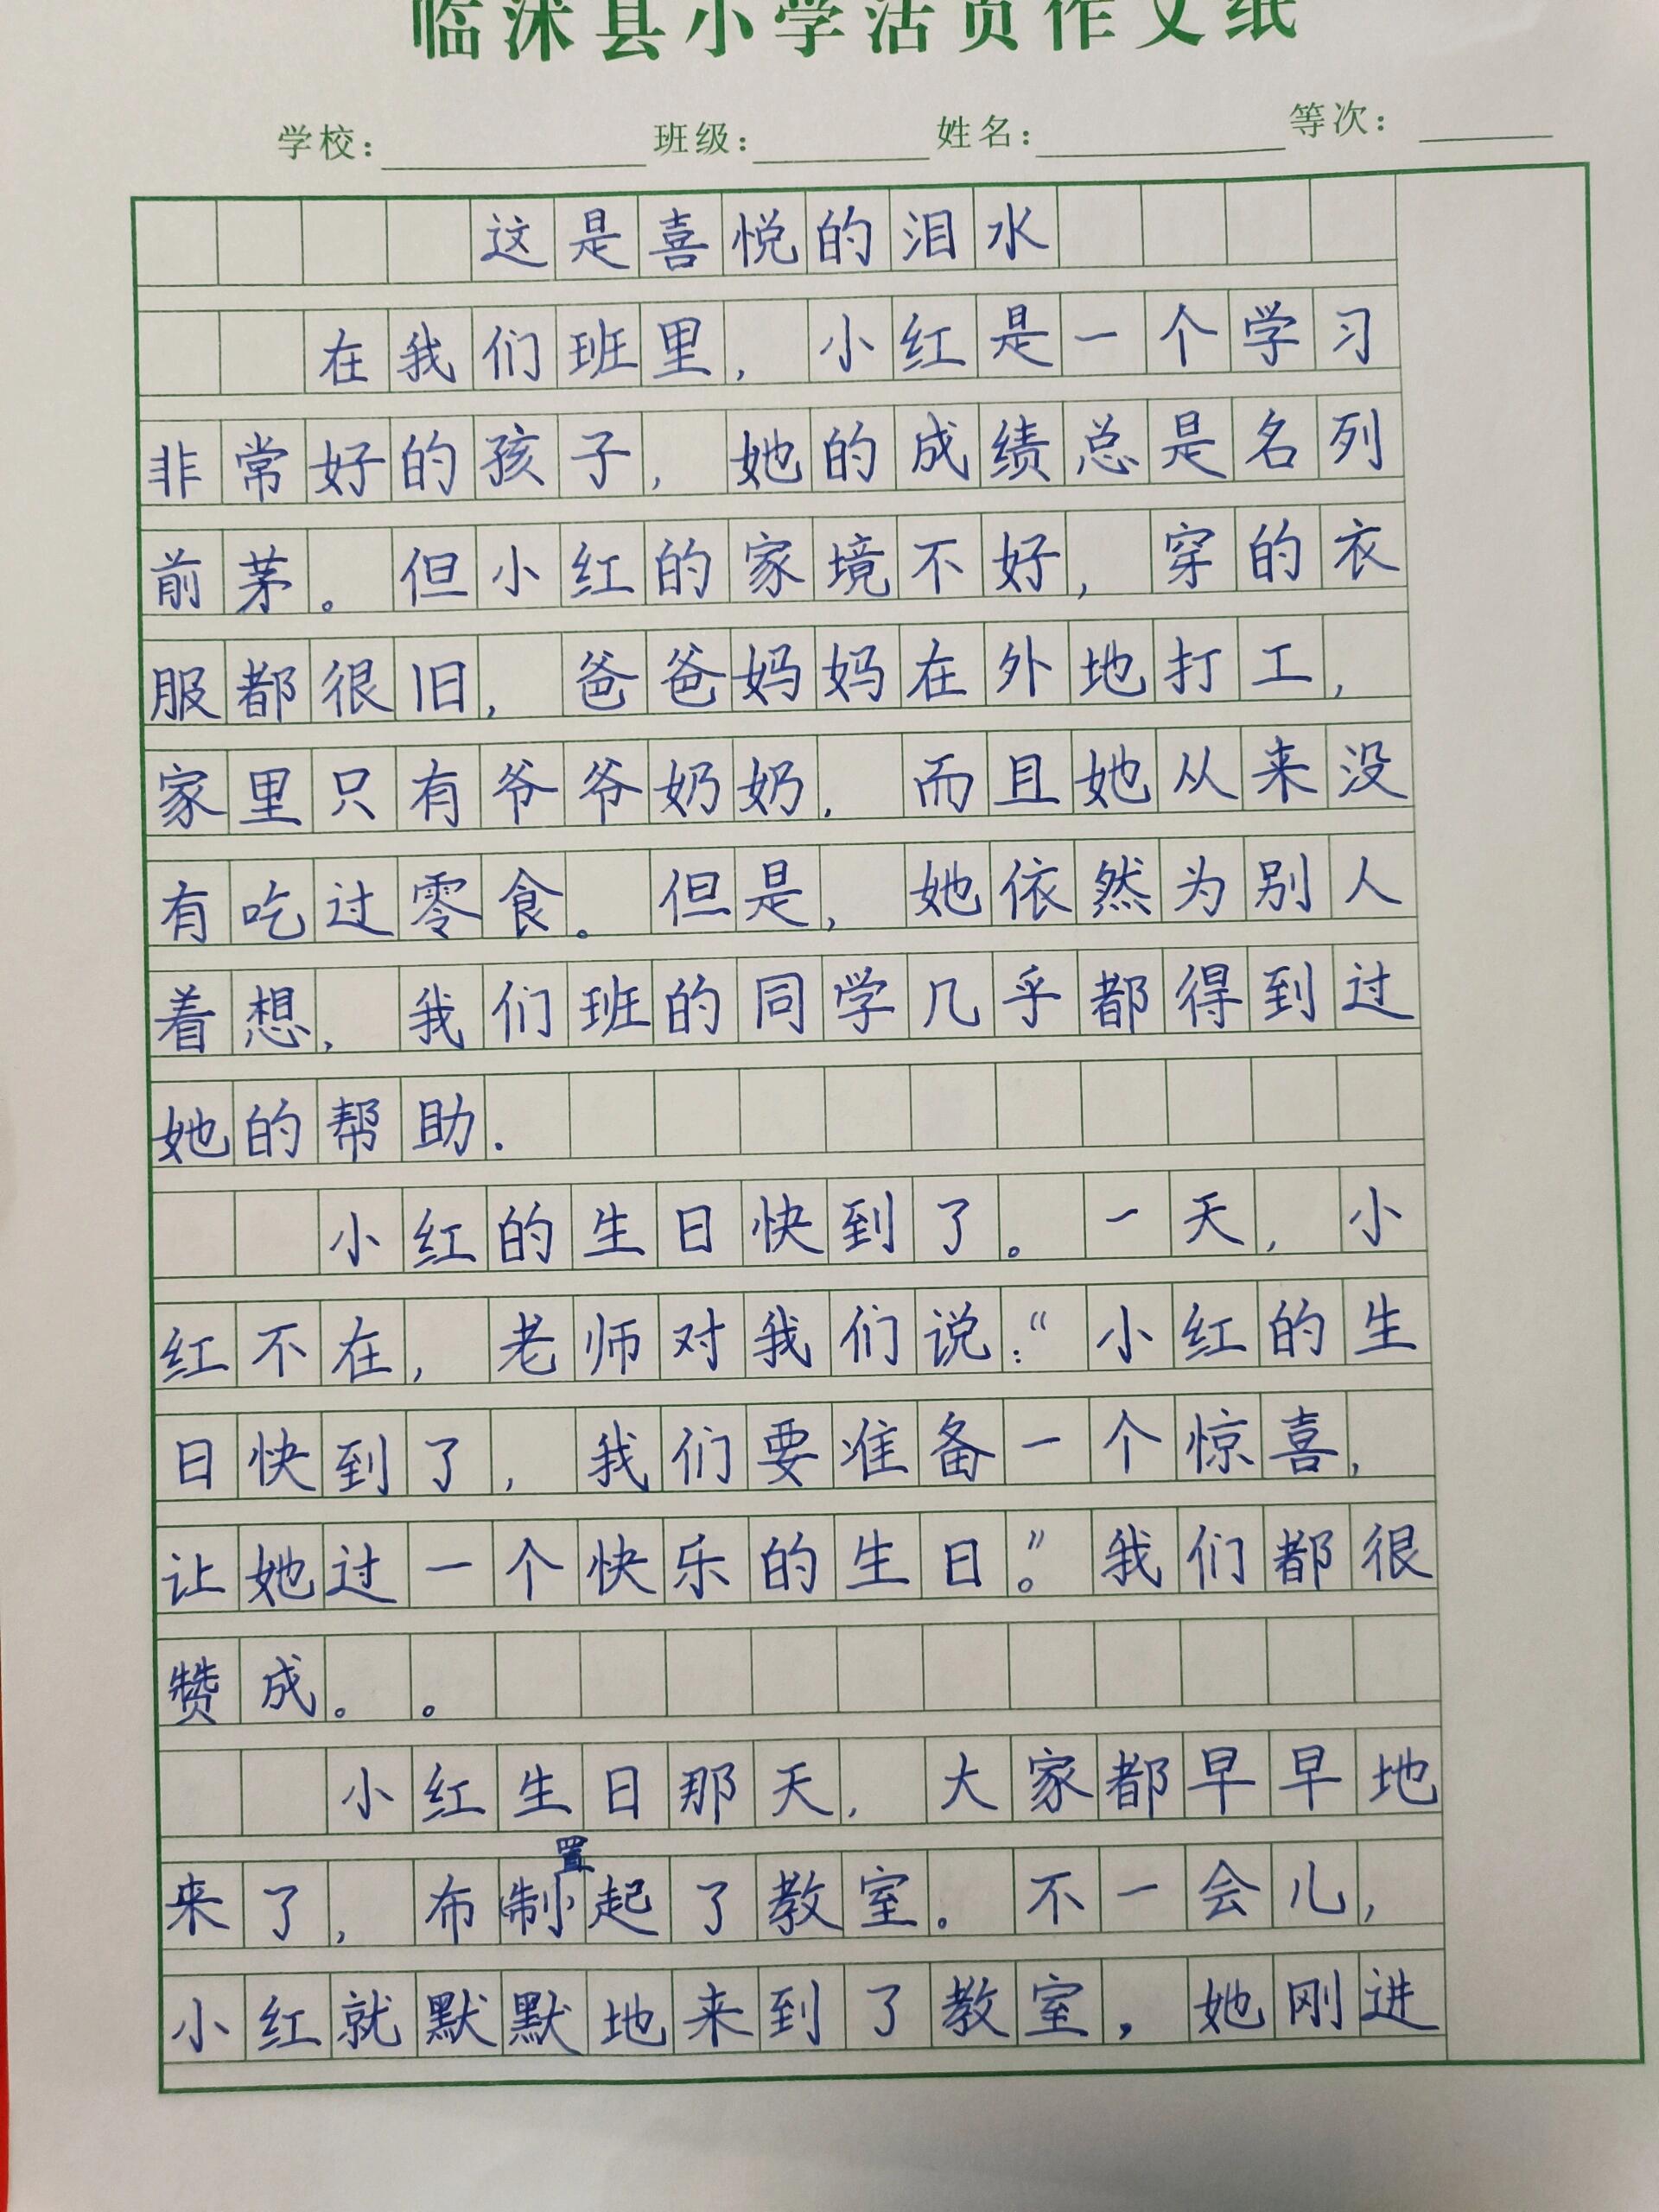 临沭县小学活页作文纸
学校： 班级： 姓名： 等次：
这是喜悦的泪水
在我们班里，小红是一个学习
非常好的孩子，她的成绩总是名列
前茅。但小红的家境不好，穿的衣
服都很旧，爸爸妈妈在外地打工，
家里只有爷爷奶奶．而且她从来没
有吃过零食。但是，她依然为别人
着想，我们班的同学几乎都得到过
她的帮助．
小红的生日快到了。一天，小
红不在，老师对我们说：“小红的生
日快到了，我们要准备一个惊喜，
让她过一个快乐的生日。”我们都很
赞成。。
小红生日那天，大家都早早地
置
来了，布制起了教室。不一会儿，
小红就默默地来到了教室，她刚进